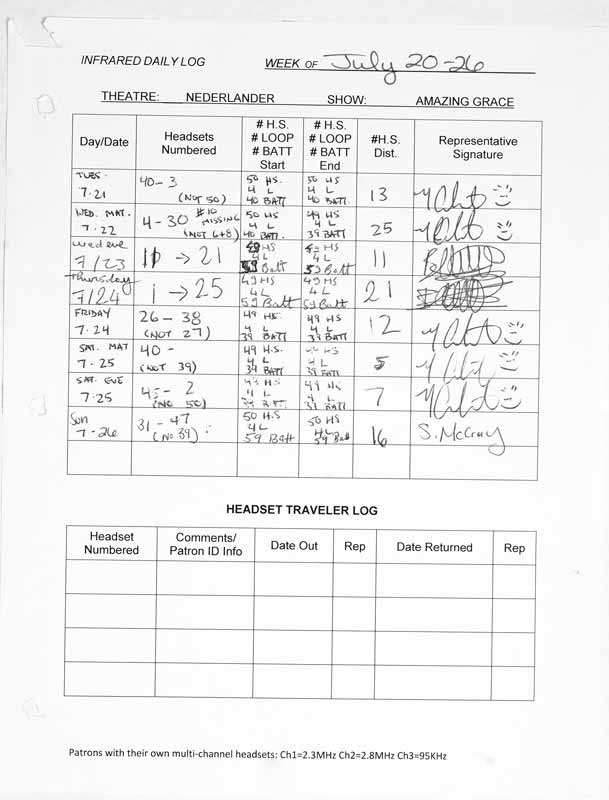 INFRARED DAILY LOG WEEK OF July 20-26
THEATRE: NEDERLANDER SHOW: AMAZING GRACE
Day/Date Headsets Numbered # H.S. # LOOP # BATT Start # H.S. # LOOP # BATT End #H.S. Dist. Representative Signature
TUES. 7.21 40-3 (NOT 50) 50 HS. 4 L 40 BATT 50 HS 4 L 40 BATT 13
WED. MAT. 7.22 4-30 #10 MISSING (NOT 6+8) 50 HS 4 L 40 BATT 49 HS 4 L 39 BATT 25
Wed eve 7/23 → 21 HS 4L Batt HS 4L 59 Batt 11
Thursday 7/24 1 → 25 49 HS 4L 59 Batt 49 HS 4L 59 Batt 21
FRIDAY 7.24 26-38 (NOT 27) 49 HS. 4 L 39 BATT 49 HS 4 L 39 BATT 12
SAT. MAT 7.25 40- (NOT 39) 49 H.S. 4 L 39 BATT HS 4 L 39 BATT 5
SAT. EVE 7.25 45-2 (NO 50) 49 H.S 4 L 49 HS 4 L BATT 7
Sun 7-26 31-47 (NO 39) 50 H.S 4L 59 Batt 50 HS 4L 59 Batt 16 S. McCray
HEADSET TRAVELER LOG
Headset Numbered Comments/ Patron ID Info Date Out Rep Date Returned Rep
Patrons with their own multi-channel headsets: Ch1=2.3MHz Ch2=2.8MHz Ch3=95KHz